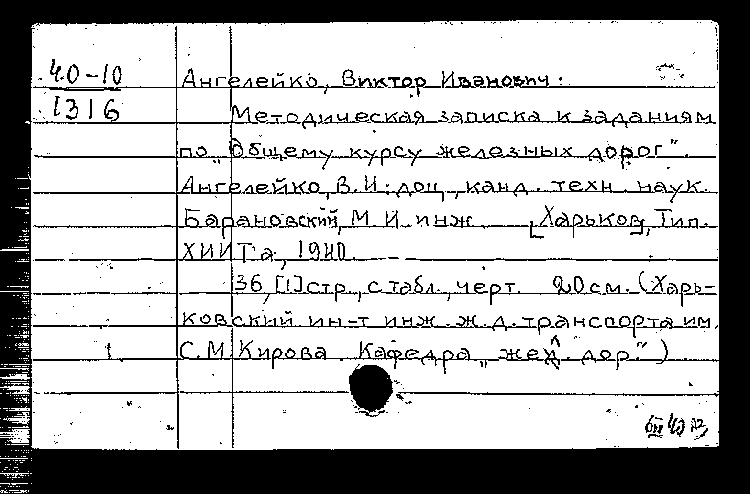 40-10
1316
Ангелейко, Виктор Иванович:
Методическая записка к заданиям
по „Общему курсу железных дорог".
Ангелейко, В. И. доц., канд. техн. наук.
Барановский, М. И. инж. [Харьков], Тип.
ХИИТа, 1940.
36, [1] стр., с табл., черт. 20 см. (Харь-
ковский ин-т инж. ж.д. транспорта им.
1. С. М. Кирова. Кафедра „жел. дор.")